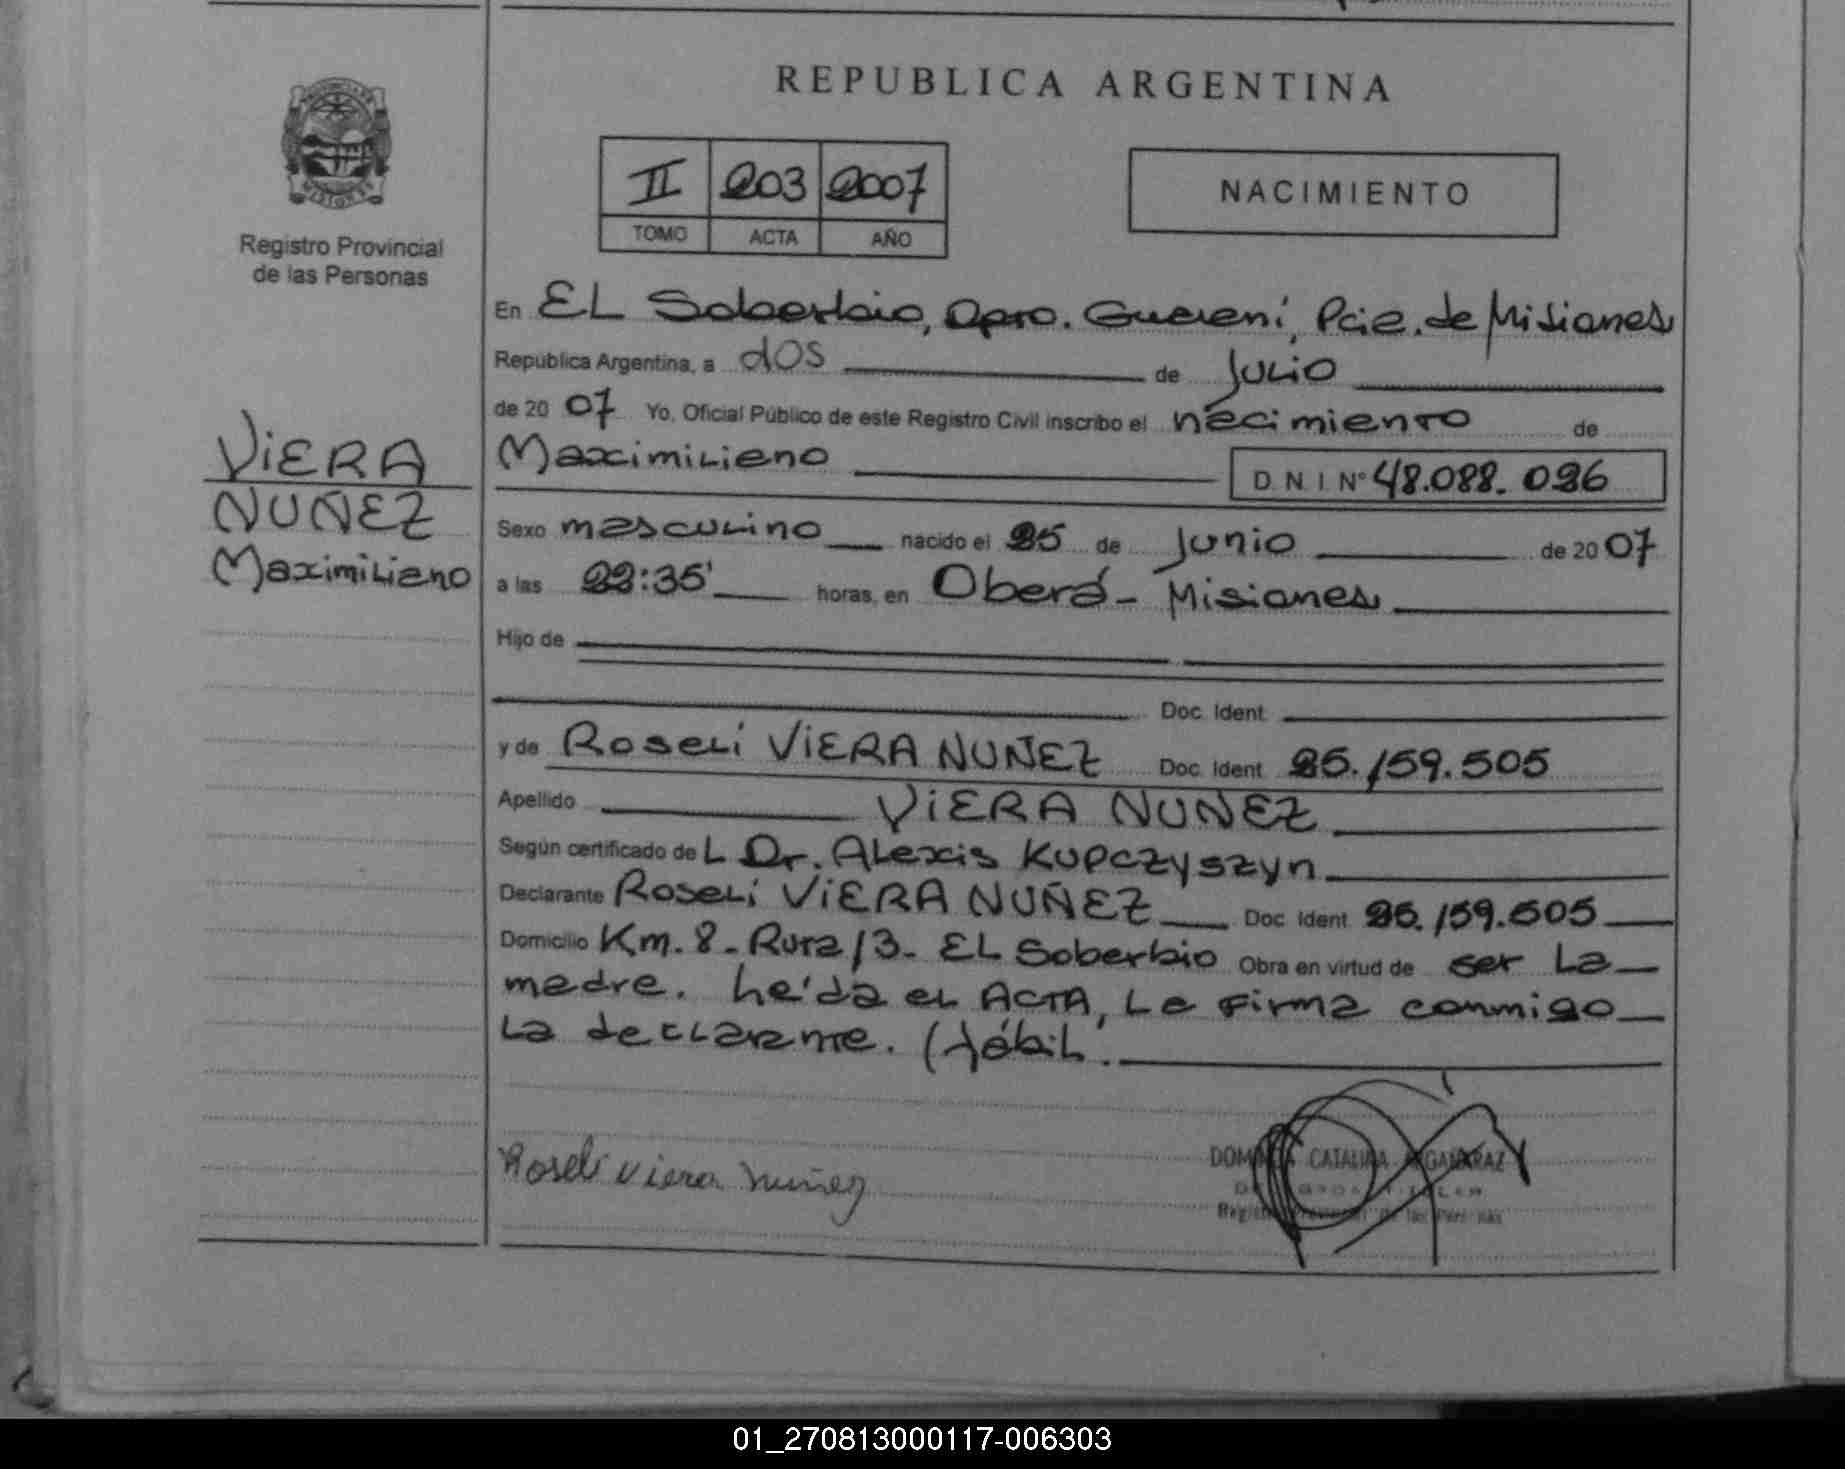 REPUBLICA ARGENTINA
II 203 2007
TOMO ACTA AÑO
NACIMIENTO
Registro Provincial
de las Personas
VIERA
NUÑEZ
Maximiliano
En EL Soberbio, Dpto. Guaraní, Pcia. de Misiones
República Argentina, a dos de Julio
de 20 07 Yo, Oficial Público de este Registro Civil inscribo el nacimiento de
Maximiliano D.N.I. Nº 48.088.026
Sexo masculino nacido el 25 de Junio de 20 07
a las 22:35' horas, en Oberá - Misiones
Hijo de
Doc. Ident.
y de Roseli VIERA NUÑEZ Doc. Ident. 25.159.505
Apellido VIERA NUÑEZ
Según certificado de L Dr. Alexis Kupczyszyn
Declarante Roseli VIERA NUÑEZ Doc. Ident. 25.159.505
Domicilio Km. 8 - Ruta 13 - EL Soberbio Obra en virtud de ser La
madre. Leída el ACTA, La firma conmigo
La declarante. (Hábil.
Roseli Viera Nuñez
CATALINA
Registro Provincial de las Personas
01_270813000117-006303